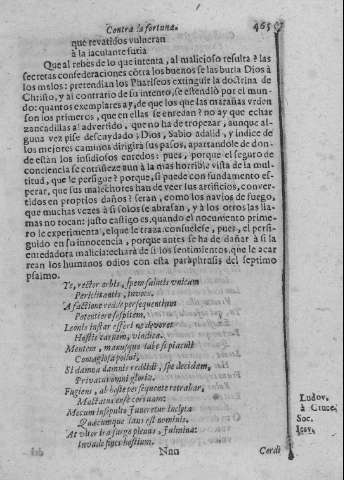 Contra la fortuna. 465
que revatidos vulneran
à la iaculante furia
Que al rebes de lo que intenta, al malicioso resulta? las
secretas confederaciones cõtra los buenos se las burla Dios à
los malos: pretendian los Phariseos extinguir la doctrina de
Christo, y al contrario de su intento, se estendiò por el mun-
do: quantos exemplares ay, de que los que las marañas vrden
son los primeros, que en ellas se enredan? no ay que echar
zancadillas al advertido, que no ha de tropezar, aunque al-
guna vez pise descuydado; Dios, Sabio adalid, y indice de
los mejores caminos dirigirà sus pasos, apartandole de don-
de estàn los insidiosos enredos: pues, porque el seguro de
conciencia se entristeze aun à la mas horrible vista de la mul-
titud, que le persigue? porque, si puede con fundamento es-
perar, que sus malechores han de veer sus artificios, conver-
tidos en proprios daños? seràn, como los navios de fuego,
que muchas vezes à si solos se abrasan, y à los otros las lla-
mas no tocan: justo castigo es, quando el nocumento prime-
ro le experimenta, el que le traza: consuelese, pues, el persi-
guido en su innocencia, porque antes se ha de dañar à si la
enredadora malicia: echarà de si los sentimientos, que le acar-
rean los humanos odios con esta paraphrasis del septimo
psalmo.
Te, rector orbis, spem salutis unicam
Periclitantis, invoco.
A factione redde persequentium
Potentiore sospitem,
Leonis instar efferi ne devoret
Hostis carnem, vindica.
Mentem, manusque labe si piaculi
Contagiosa pollui,
Si damna damnis reddidi, spe decidam,
Privatus omni gloria.
Fugiens, ab hoste persequente retrahar,
Mactatus ense corruam:
Mecum insepulta funeretur inclyta
Quæcumque laus est nominis.
At ultor ira surge plenus, fulmina:
Invade fines hostium.
Ludov.
à Cruce,
Soc.
Iesv.
Nnn Cordi